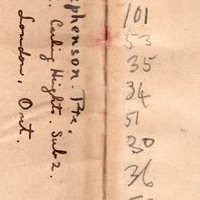 Stephenson. Pte.
Carling Heights. Sub 2.
London, Ont.
101
53
35
34
51
30
36